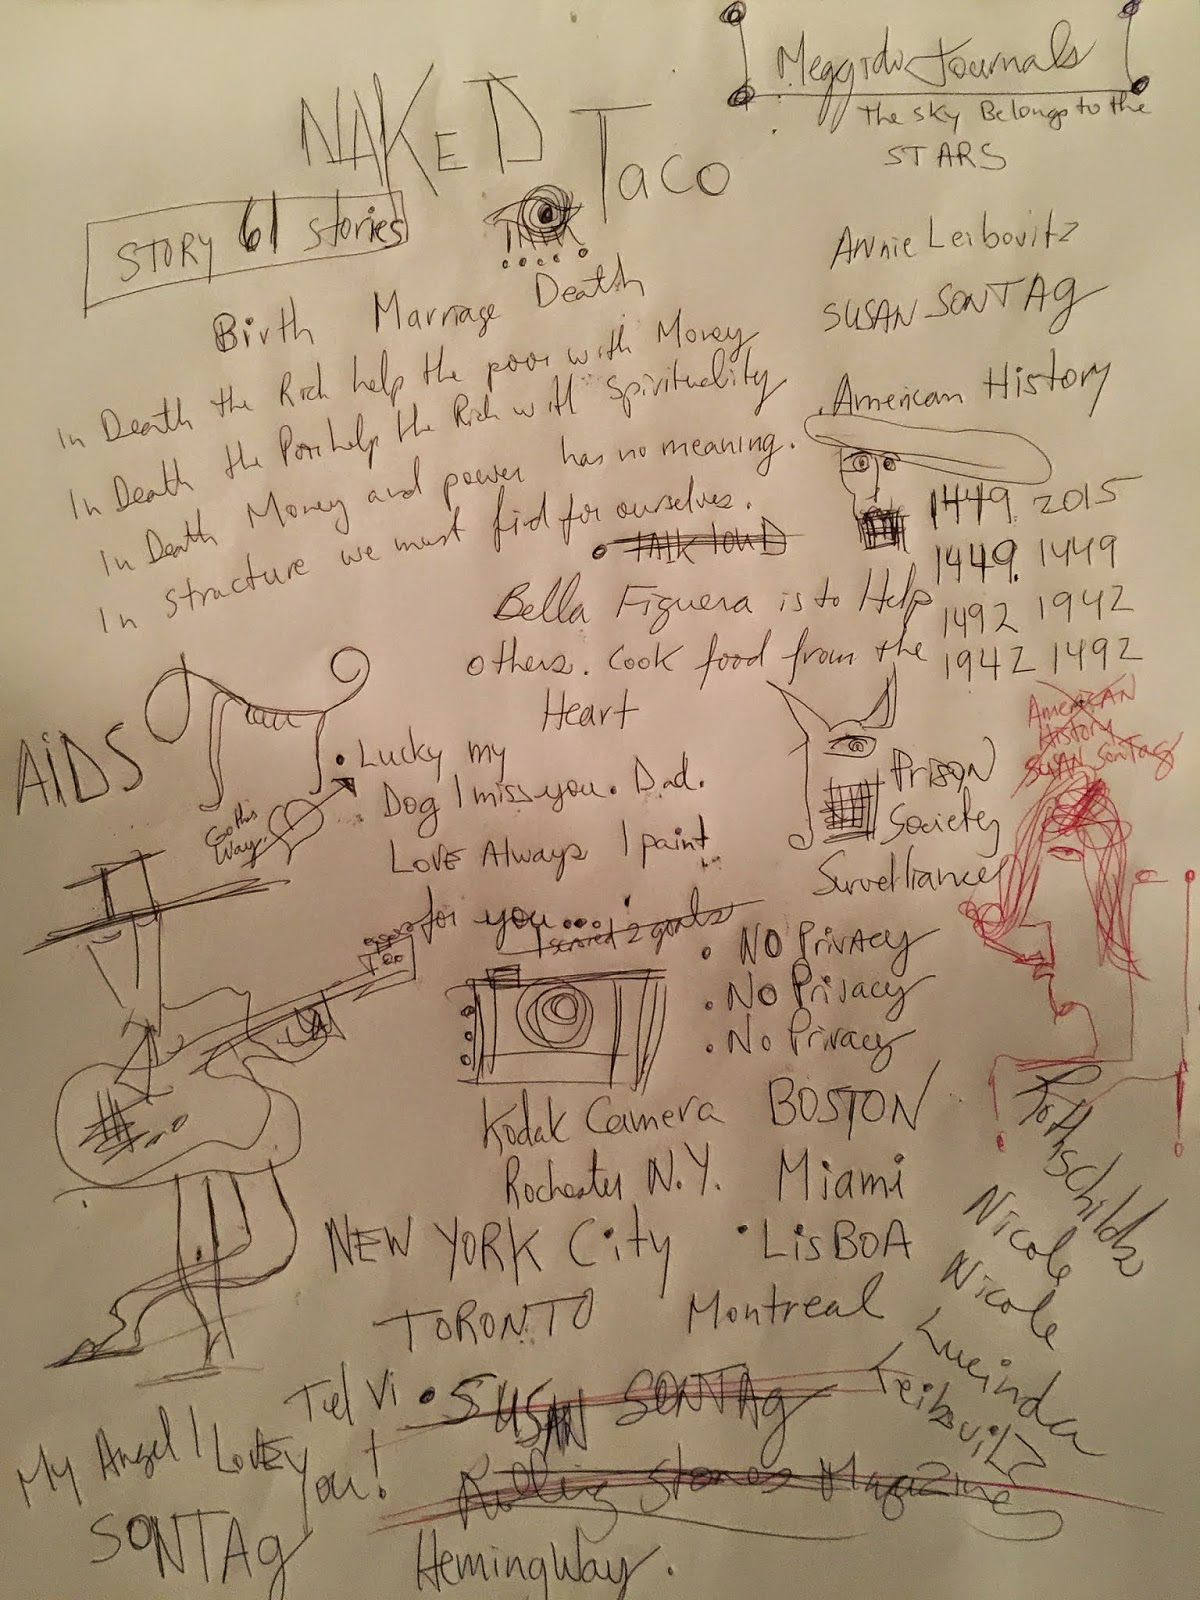 Meggido Journals
The Sky Belongs to the
STARS
NAKED Taco
STORY 61 stories
Annie Leibovitz
SUSAN SONTAG
American History
Birth Marriage Death
In Death the Rich help the poor with Money
In Death the Poor help the Rich with Spirituality
In Death Money and power has no meaning.
In structure we must find for ourselves.
TALK LOUD
1449 2015
1449. 1449
1492 1942
1942 1492
Bella Figuera is to Help
others. Cook food from the
Heart
AIDS
Go this
Way
Lucky my
Dog I miss you. Dad.
LOVE Always I paint
for you...
I scored 2 goals
Prison
Society
Surveillance
American
History
SUSAN SonTag
• NO PrivACY
• NO Privacy
• No Privacy
Kodak Camera BOSTON
Rochester N.Y. Miami
NEW YORK City • LisBOA
TORONTO Montreal
Rothschilds
Nicole
Nicole
Lucinda
Leibovitz
Tel Vi • SUSAN SONTAG
My Angel I LOVE you!
Rolling Stones MagaZine
SONTAg
HemingWay.